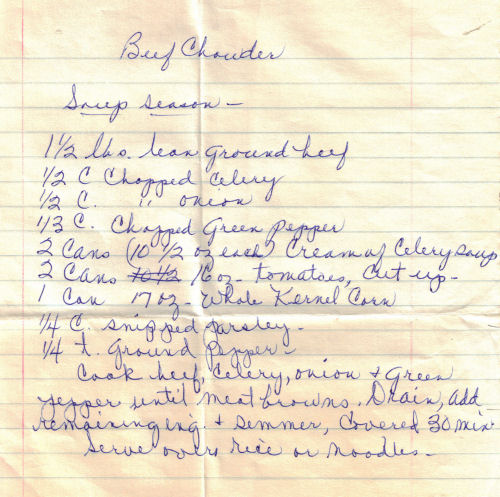 Beef Chowder
Soup season -
1 1/2 lbs. lean ground beef
1/2 C Chopped Celery
1/2 C. " onion
1/3 C. Chopped Green Pepper
2 Cans (10 1/2 oz each) Cream of Celery soup
2 Cans 10 1/2 16 oz - tomatoes, cut up -
1 Can 17 oz - Whole Kernel Corn
1/4 C. snipped parsley -
1/4 t. Ground Pepper -
Cook beef, Celery, onion + Green
pepper until meat browns. Drain, add
remaining ing. + semmer, Covered 30 min
Serve over rice or noodles -